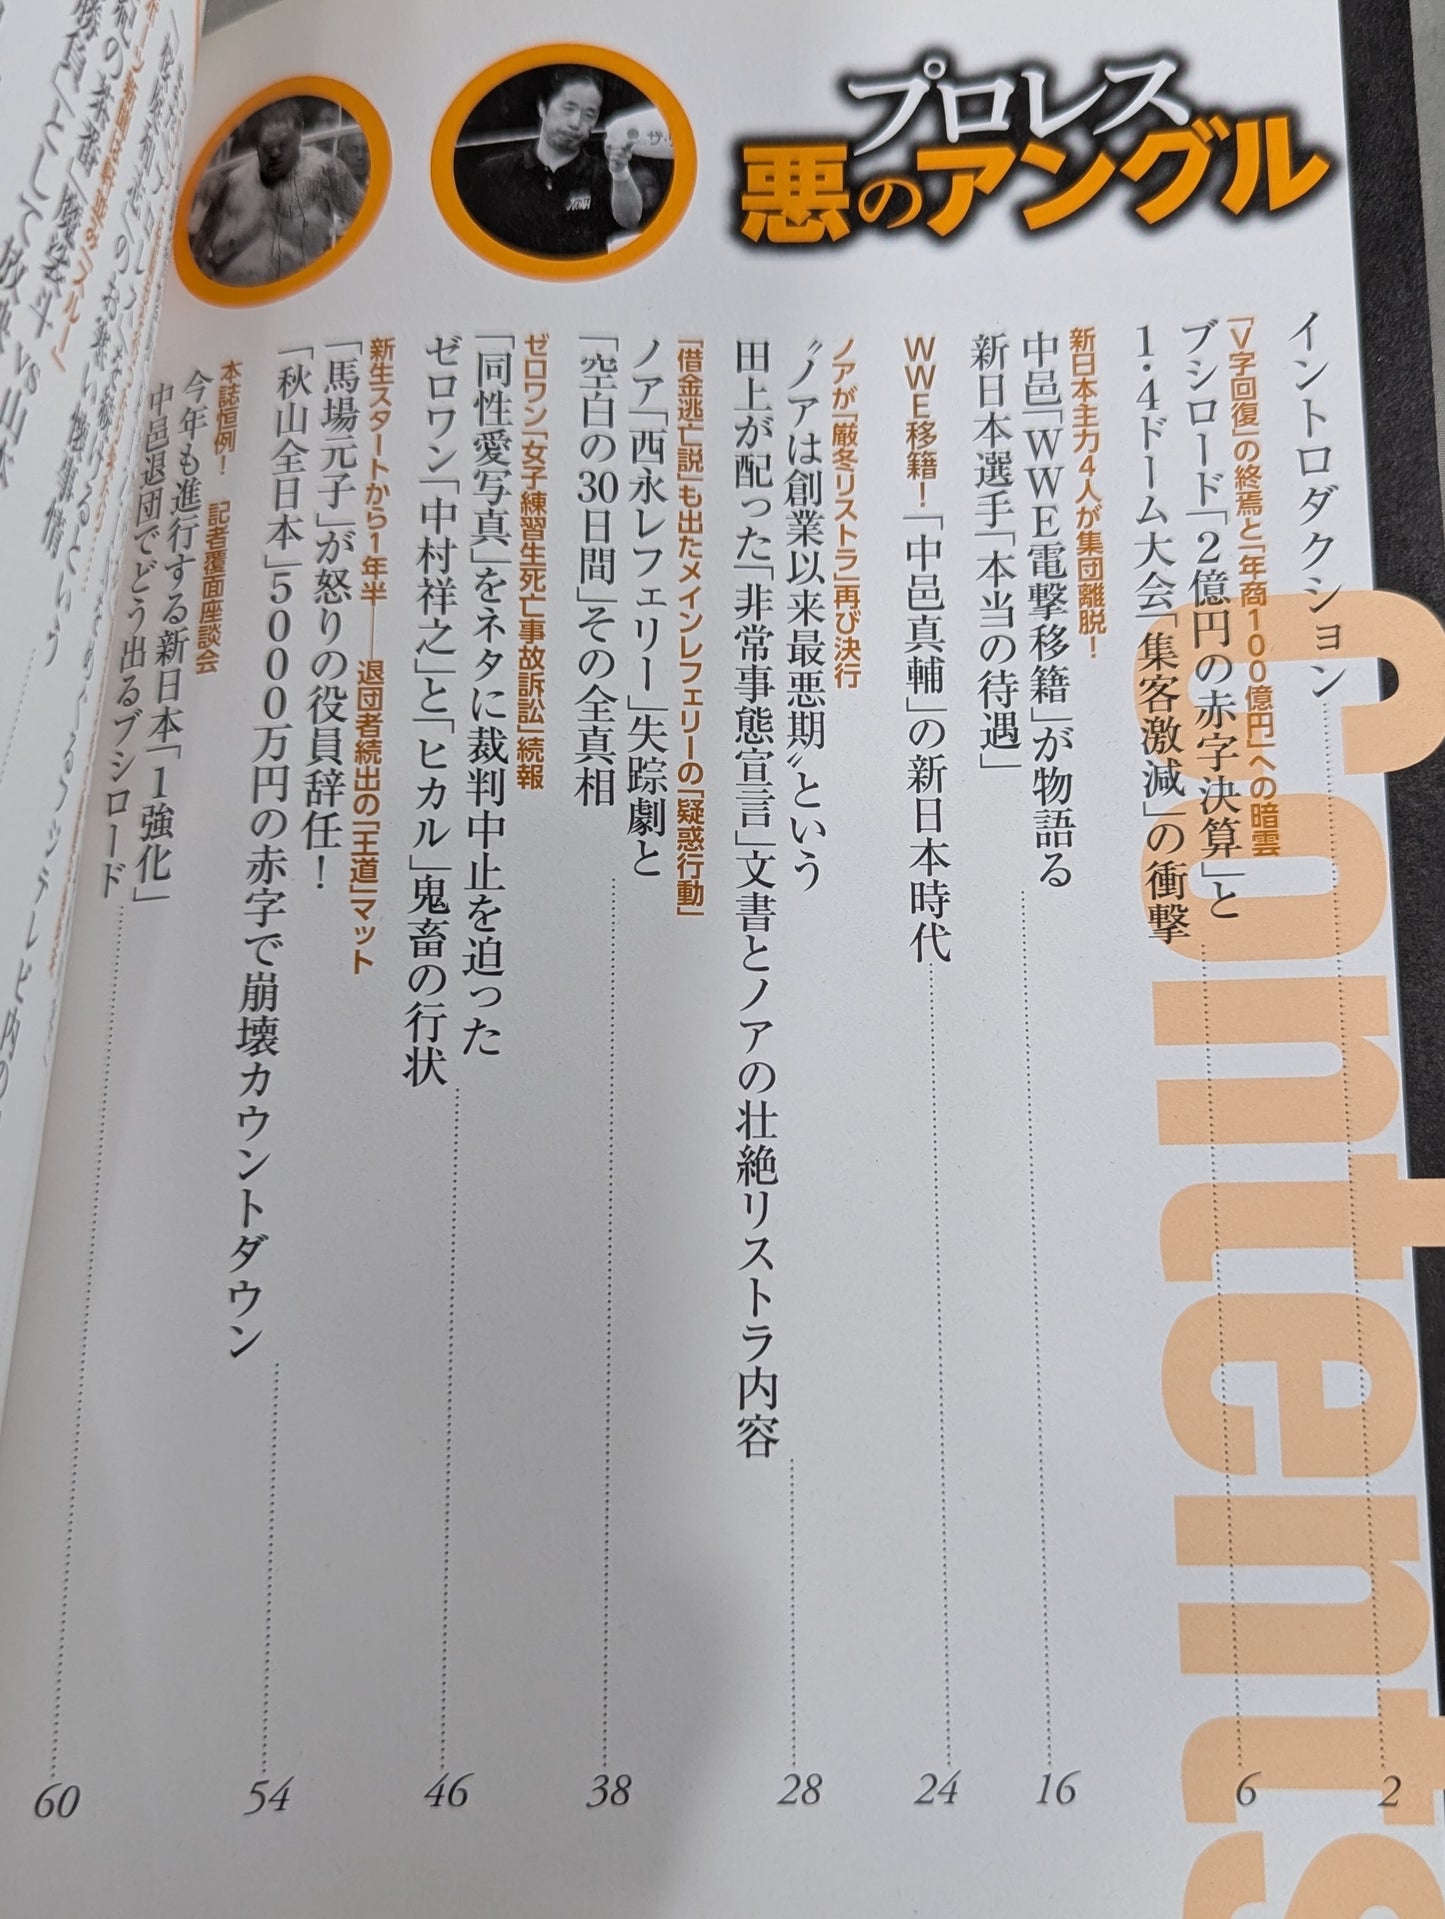 プロレス
悪のアングル
Contents
イントロダクション
2
「V字回復」の終焉と「年商100億円」への暗雲
ブシロード「2億円の赤字決算」と
1・4ドーム大会「集客激減」の衝撃
6
新日本主力4人が集団離脱!
中邑「WWE電撃移籍」が物語る
新日本選手「本当の待遇」
16
WWE移籍!「中邑真輔」の新日本時代
24
ノアが「厳冬リストラ」再び決行
〝ノアは創業以来最悪期〟という
田上が配った「非常事態宣言」文書とノアの壮絶リストラ内容
28
「借金逃亡説」も出たメインレフェリーの「疑惑行動」
ノア「西永レフェリー」失踪劇と
「空白の30日間」その全真相
38
ゼロワン「女子練習生死亡事故訴訟」続報
「同性愛写真」をネタに裁判中止を迫った
ゼロワン「中村祥之」と「ヒカル」鬼畜の行状
46
新生スタートから1年半――退団者続出の「王道」マット
「馬場元子」が怒りの役員辞任!
「秋山全日本」5000万円の赤字で崩壊カウントダウン
54
本誌恒例! 「記者覆面座談会
今年も進行する新日本「1強化」
中邑退団でどう出るブシロード
60